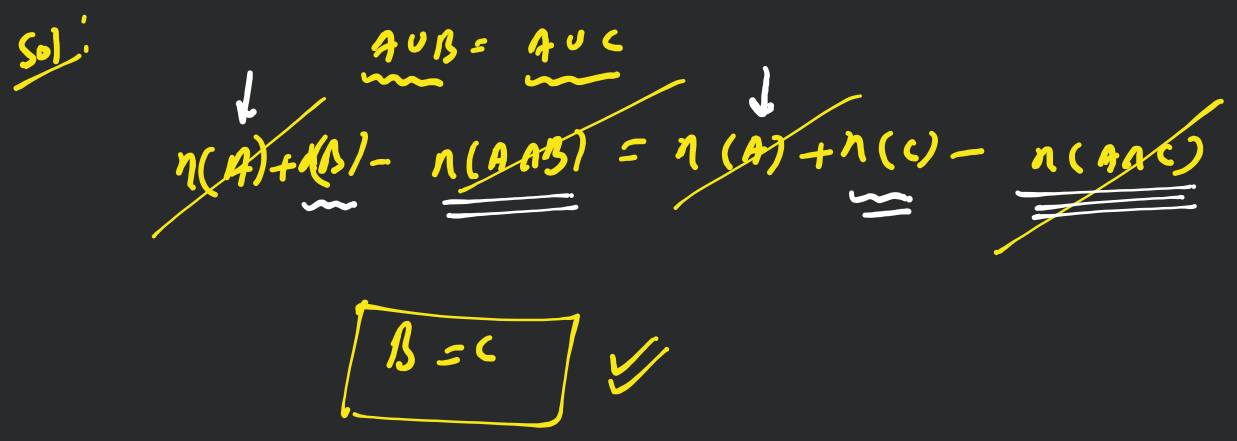 Sol:
A∪B = A∪C
n(A)+n(B)- n(A∩B) = n(A)+n(C)- n(A∩C)
B = C